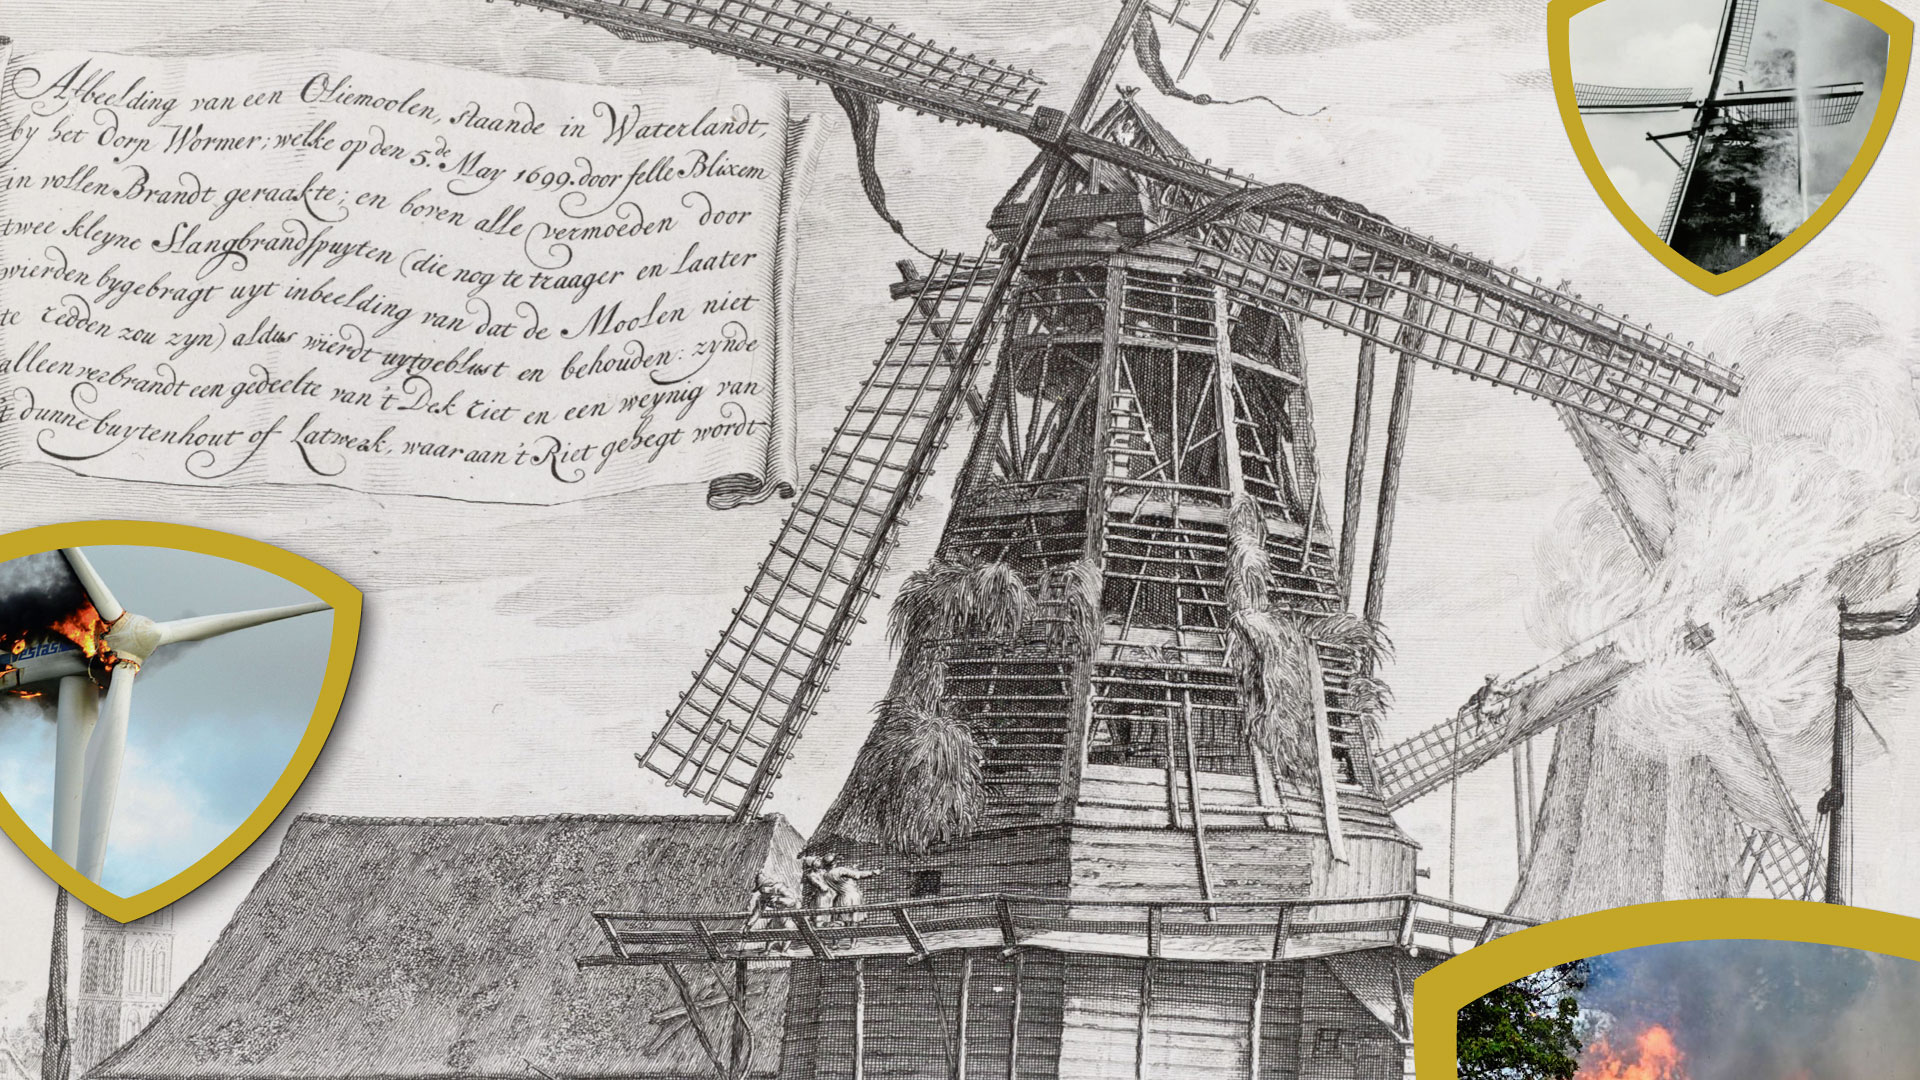 Afbeelding van een Oliemoolen, staande in Waterlandt,
by het Dorp Wormer; welke op den 5.de May 1699. door felle Blixem
in vollen Brandt geraakte; en boven alle vermoeden door
twee kleyne Slangbrandspuyten (die nog te traager en laater
wierden bygebragt uyt inbeelding van dat de Moolen niet
te redden zou zyn) aldus wierdt uytgeblust en behouden: zynde
alleen verbrandt een gedeelte van 't Dek riet en een weynig van
't dunne buytenhout of Latwerk, waar aan 't Riet gehegt wordt